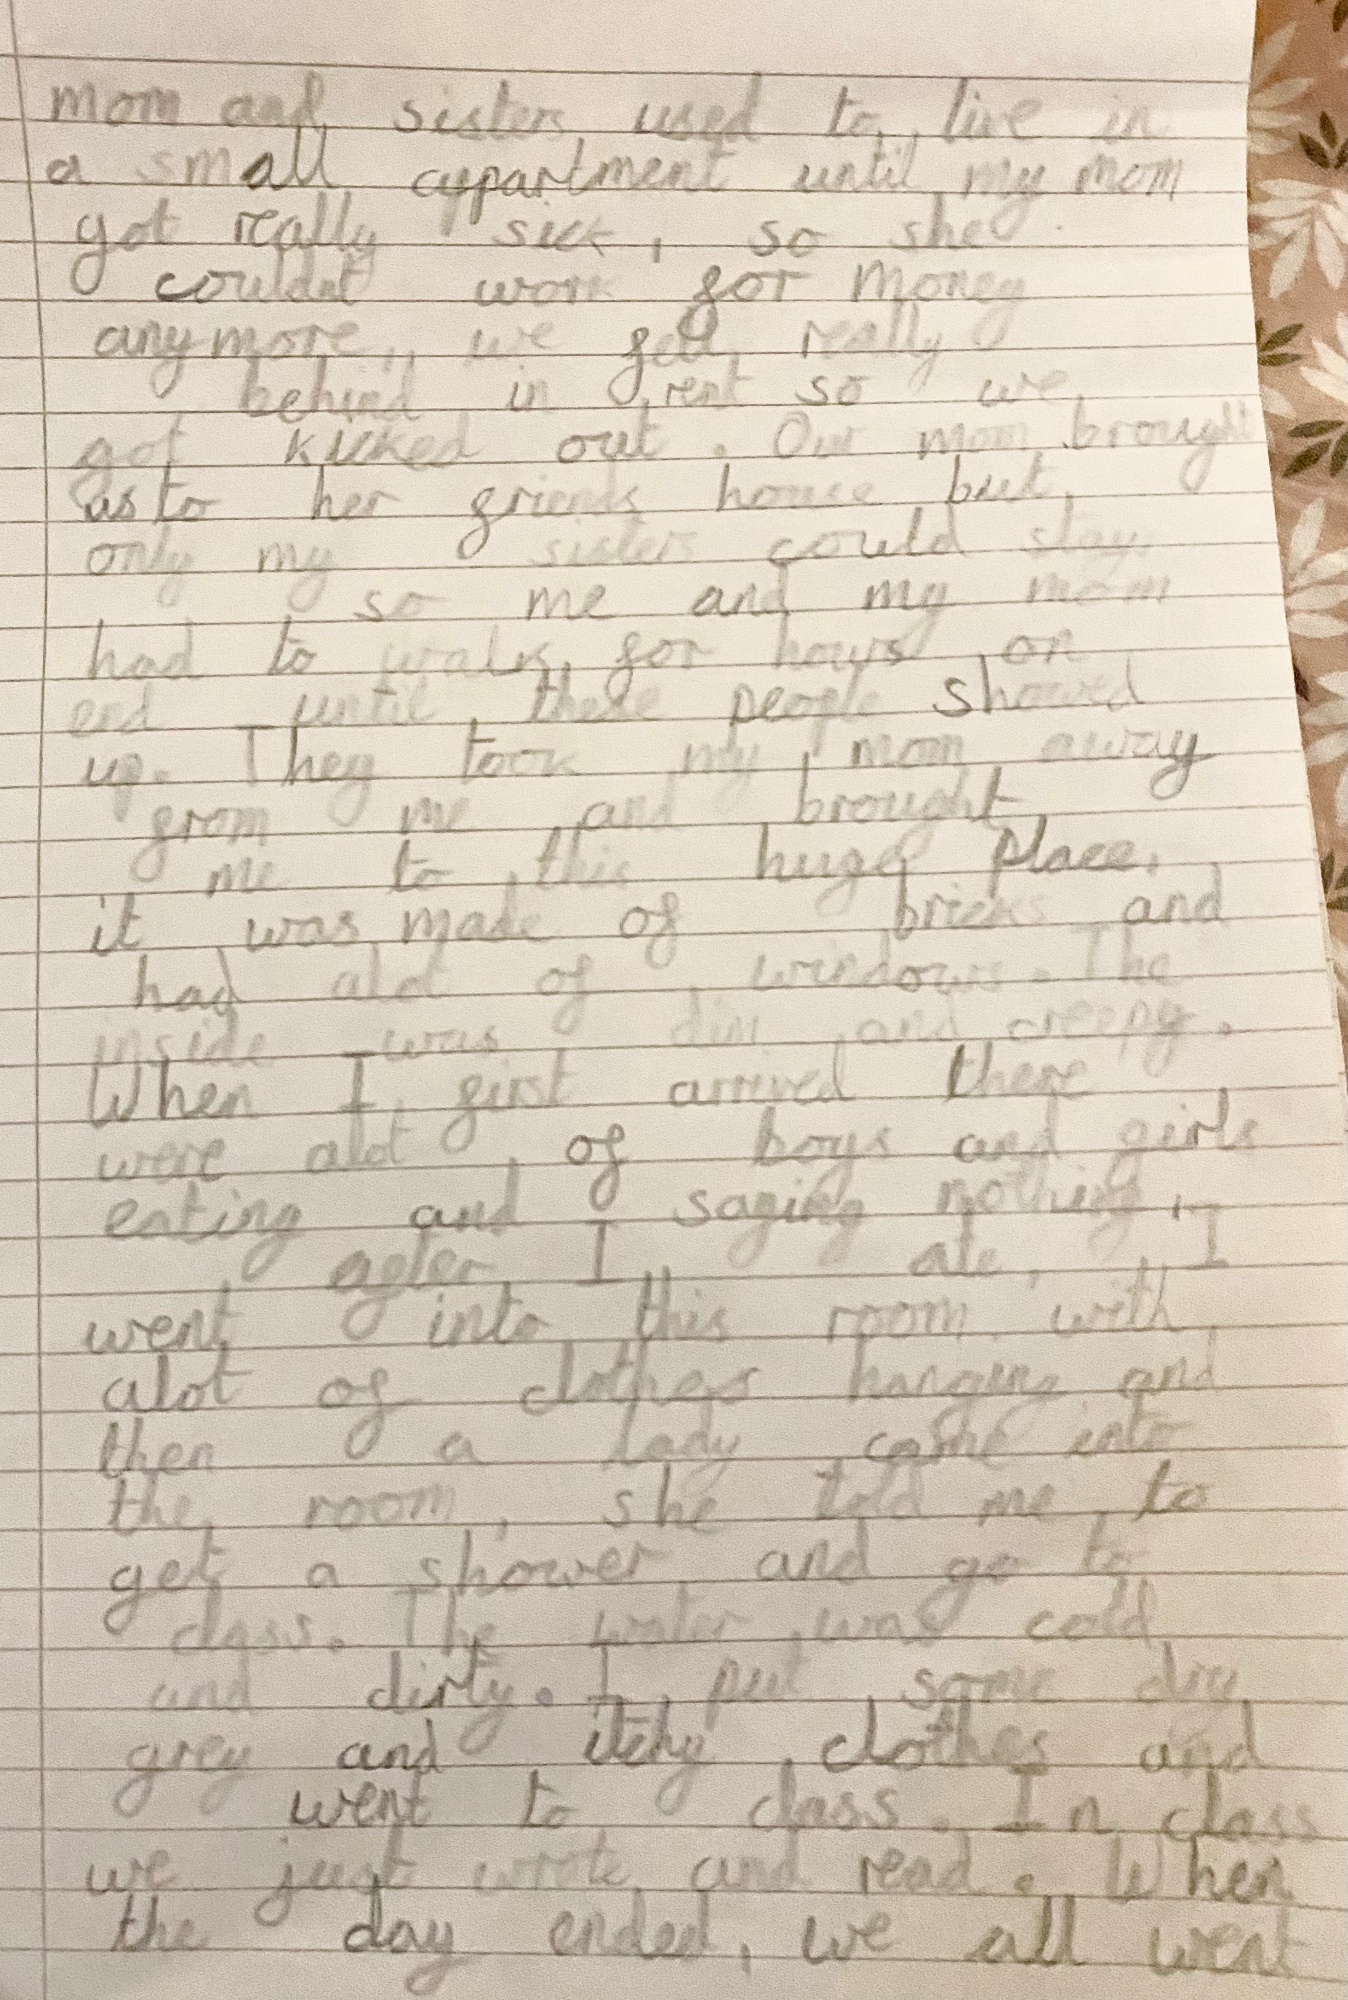 mom and sisters used to live in
a small appartment until my mom
got really sick, so she
couldnt work for money
anymore, we fell really
behind in rent so we
got kicked out. Our mom brought
us to her friends house but
only my sisters could stay
so me and my mom
had to walk for hours on
end until these people showed
up. They took my mom away
from me and brought
me to this huge place,
it was made of bricks and
had alot of windows. The
inside was dim and creepy.
When I first arrived there
were alot of boys and girls
eating and saying nothing,
after I ate, I
went into this room with
alot of clothes hanging and
then a lady came into
the room, she told me to
get a shower and go to
class. The water was cold
and dirty. I put some dry
grey and itchy clothes and
went to class. In class
we just wrote and read. When
the day ended, we all went